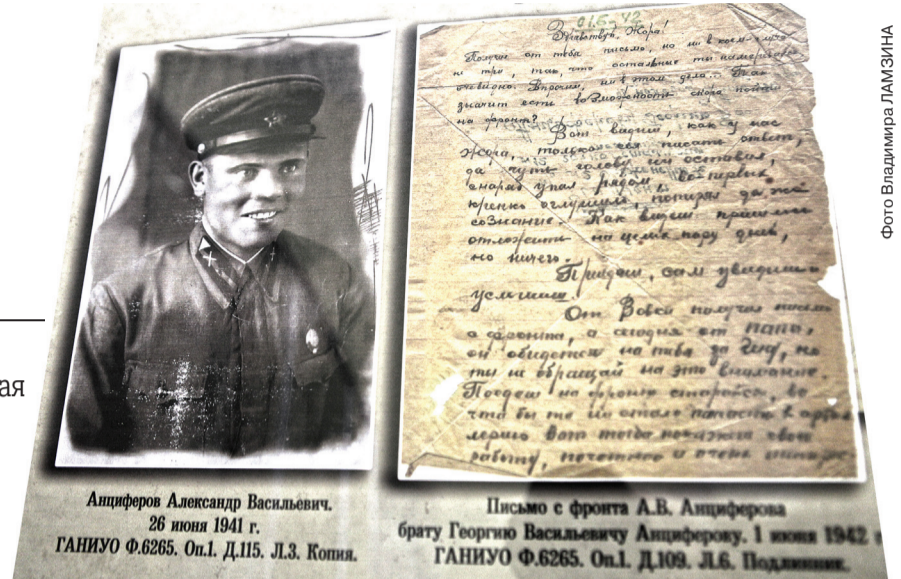 01.6-42
Здравствуй, Жора!
Получил от тебя письмо, но ни в коем случае
не три, так, что остальные ты
очевидно. Впрочем, не в этом дело. Так
значит есть возможность скоро попасть
на фронт?
Вот видишь, как у нас
Жора, только сел писать ответ,
да чуть голову не оставил,
снаряд упал рядом во первых
оглушило, потерял даже
сознание. Как видишь пришлось
отложить на целых пару дней,
но ничего.
Приедешь, сам увидишь и
услышишь.
От Вовки получил письмо
с фронта, а сегодня от папы,
он обидется на тебя за
ты не обращай на это внимание.
Поедешь на фронт старайся, во
что бы то ни стало попасть в артил
лерию вот тогда покажешь свою
работу, почетно и очень
Анциферов Александр Васильевич.
26 июня 1941 г.
ГАНИУО Ф.6265. Оп.1. Д.115. Л.3. Копия.
Письмо с фронта А.В. Анциферова
брату Георгию Васильевичу Анциферову. 1 июня 1942
ГАНИУО Ф.6265. Оп.1. Д.109. Л.6. Подлинник.
ая
Фото Владимира ЛАМЗИНА